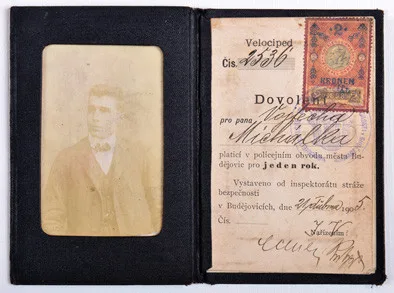 Velociped
Čís. 2536
Dovolení
pro pana Vojtěcha
Michalka
platící v policejním obvodu města Bu-
dějovic pro jeden rok.
Vystaveno od inspektorátu stráže
bezpečnosti
v Budějovicích, dne 21 října 1905
Čís.
Nařízením: